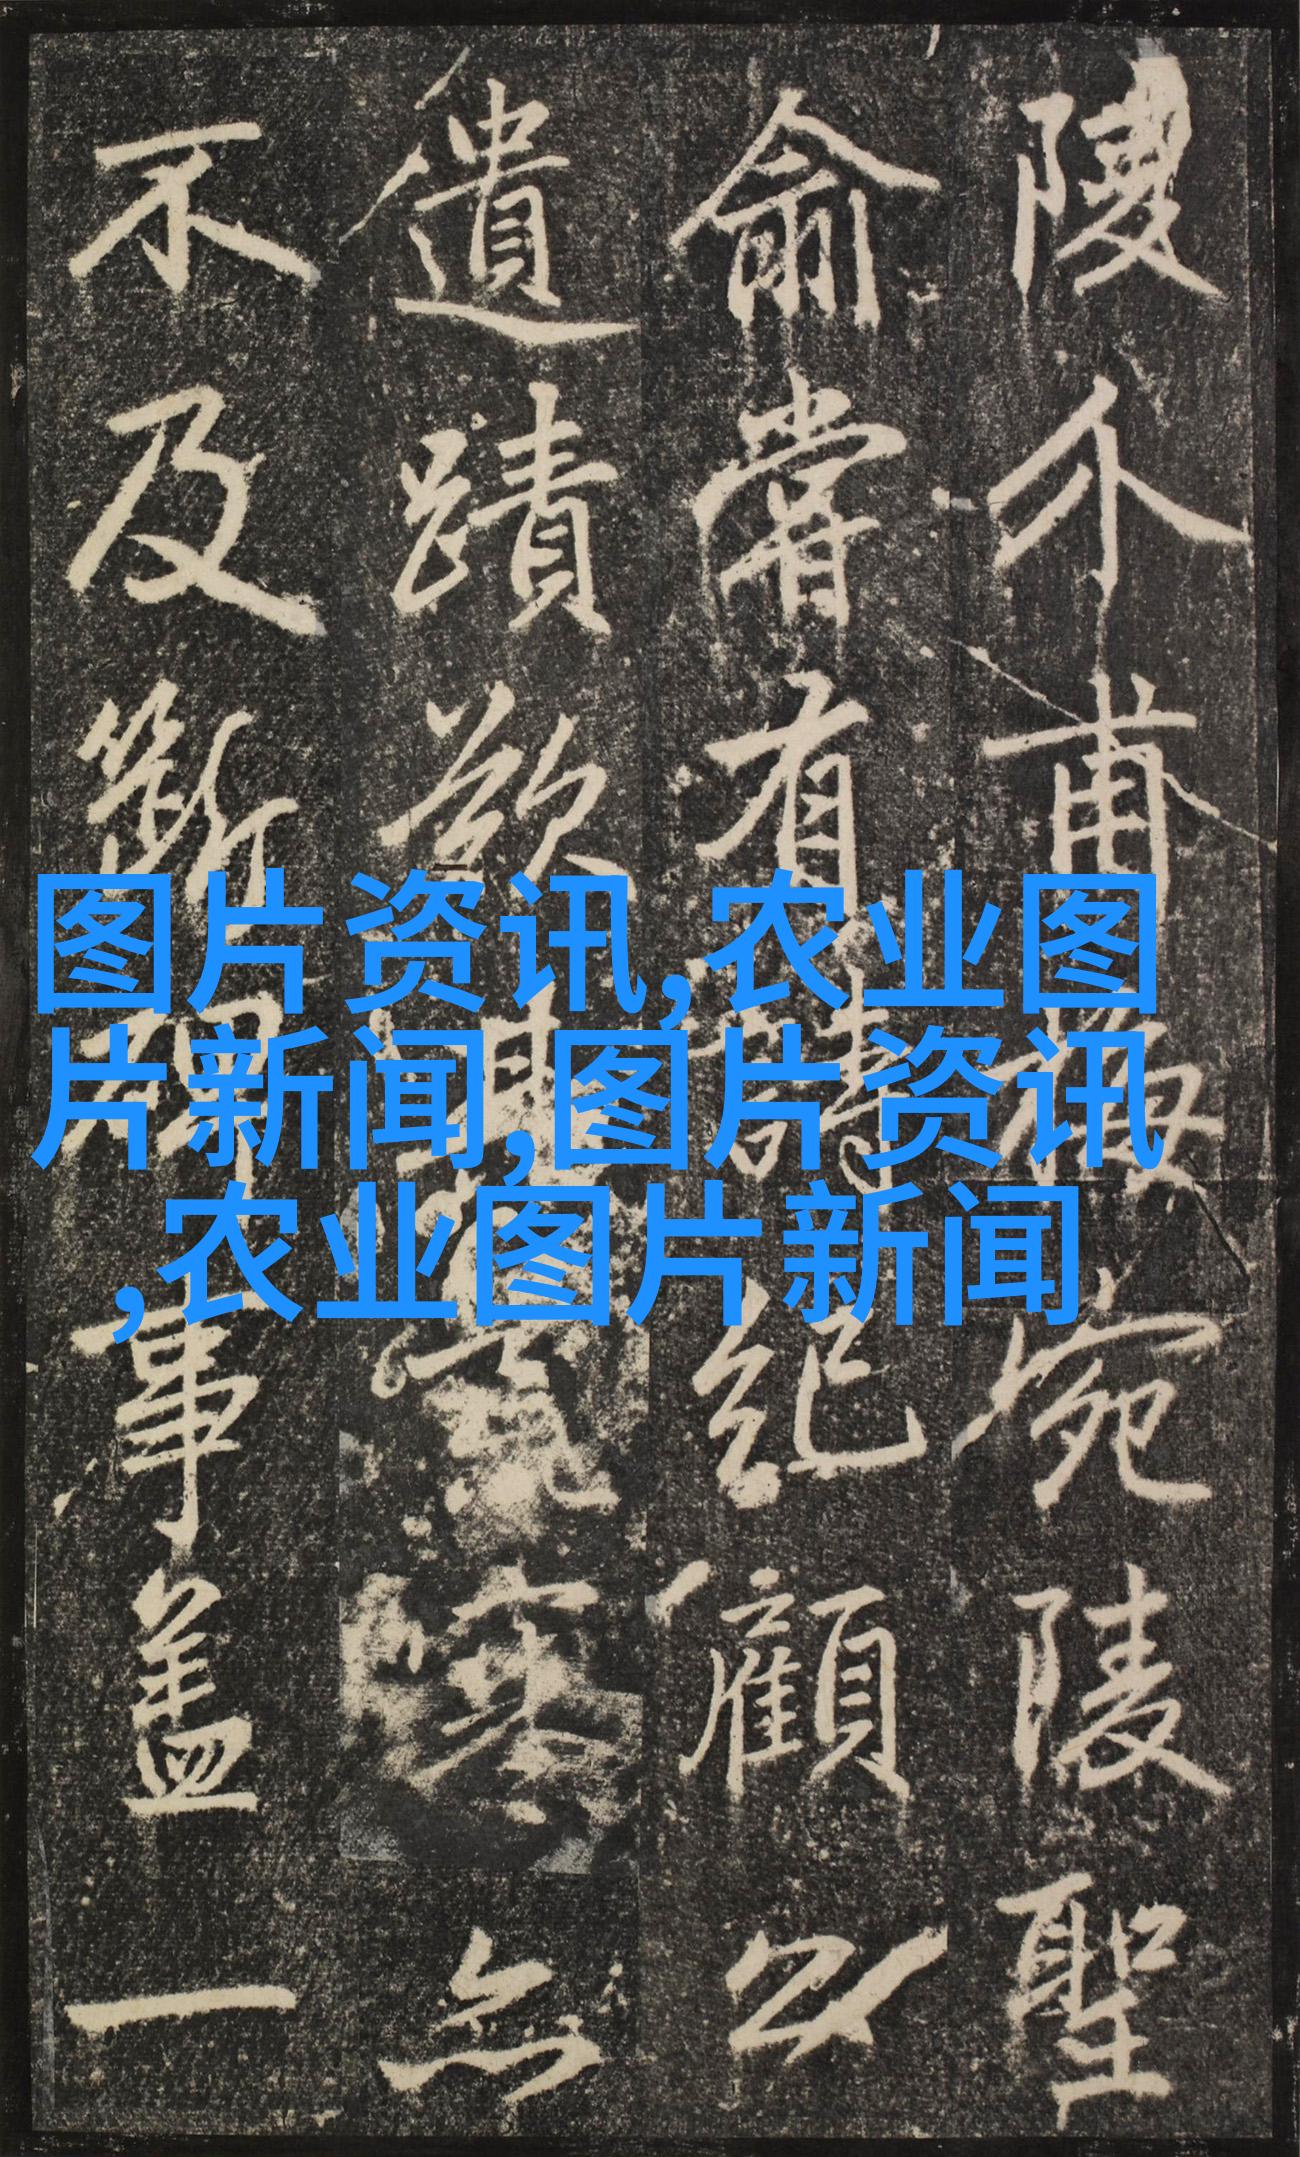 陵介甫梅宛陵聖
俞嘗有詩紀顧以
遺蹟欲其無
不及斷事盖一
图片资讯,农业图
片新闻,图片资讯
,农业图片新闻